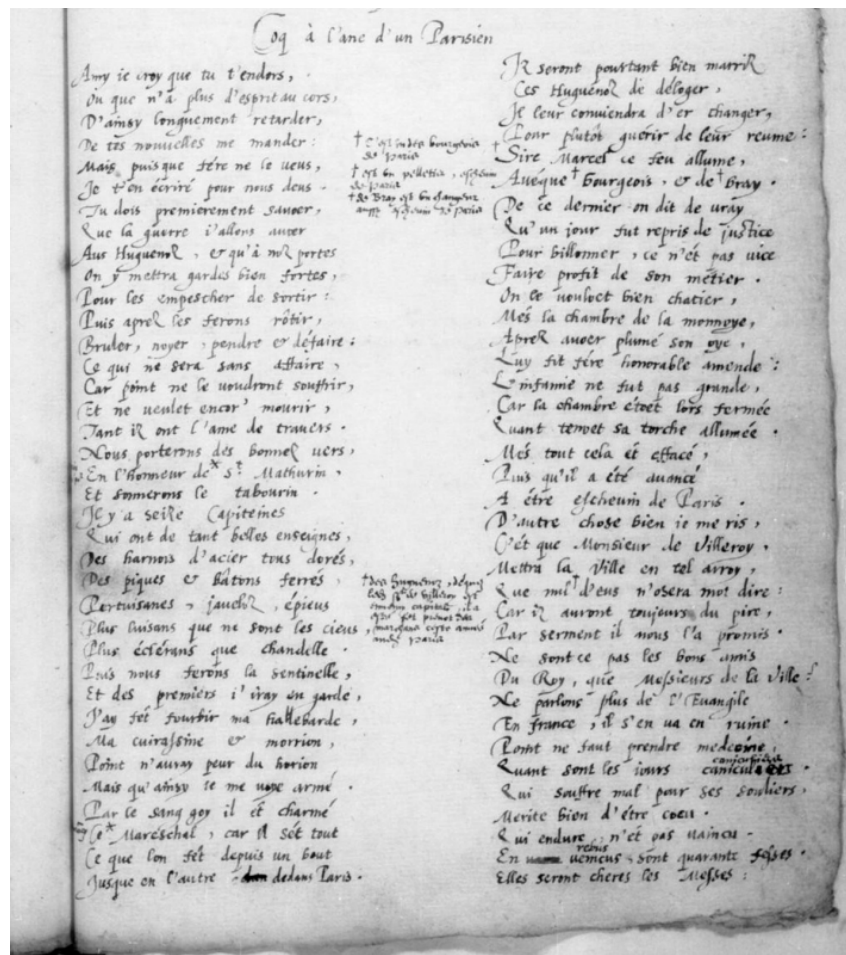 Coq à l'anc d'un Parisien
Amy ie croy que tu t'endors,
Ou que n'a plus d'esprit au cors,
D'ainsy longuement retarder,
De tes nouvelles me mander :
Mais puisque fére ne le veus,
Je t'en écriré pour nous deus.
Tu dois premierement savoer,
Que la guerre i'allons avoer
Aus Huguenoz, & qu'à noz portes
On y mettra gardes bien fortes,
Pour les empescher de sortir :
Puis aprez les ferons rôtir,
Bruler, noyer, pendre & défaire :
Ce qui ne sera sans affaire,
Car point ne le voudront souffrir,
Et ne veulet encor' mourir,
Tant iz ont l'ame de travers.
Nous porterons des bonnez vers,
En l'honneur de * St. Mathurin.
Et sonnerons le tabourin.
Il y a seize Capiteines
Qui ont de tant belles enseignes,
Des harnois d'acier tous dorés,
Des piques & bâtons ferrés,
Pertuisanes, javeloz, épieus
Plus luisans que ne sont les cieus,
Plus éclérans que chandelle.
Puis nous ferons la sentinelle,
Et des premiers i'iray en garde,
J'ay fét fourbir ma hallebarde,
Ma cuirassine & morrion,
Point n'auray peur du horion
Mais qu'ainsy ie me voye armé.
Par le sang goy il ét charmé
Ce * Mareschal, car il sét tout
Ce que lon fét depuis un bout
Jusque en l'autre dedans Paris.
† c'est un des bourgeois
de Paris
† est un pelletier, eschevin
de Paris
† de Bray est un changeur
aussy eschevin de Paris
† des huguenoz,
Iz seront pourtant bien marriz
Ces Huguenoz de déloger,
Il leur conviendra d'er changer,
Pour plutôt guerir de leur reume :
† Sire Marcel ce feu allume,
Avéque † Bourgeois, & de † Bray.
De ce dernier on dit de vray
Qu'un jour fut repris de justice
Pour billonner, ce n'ét pas vice
Faire profit de son métier.
On le vouloet bien chatier,
Més la chambre de la monnoye,
Aprez avoer plumé son oye,
Luy fit fére honorable amende :
L'infamie ne fut pas grande,
Car la chambre étoet lors fermée
Quant tenoet sa torche allumée.
Més tout cela ét effacé,
Puis qu'il a été avancé
A étre eschevin de Paris.
D'autre chose bien ie me ris,
C'ét que Monsieur de Villeroy,
Mettra la Ville en tel arroy,
Que nul † d'eus n'osera mot dire :
Car iz auront toujours du pire,
Par serment il nous l'a promis.
Ne sont ce pas les bons amis
Du Roy, que Messieurs de la Ville ?
Ne parlons plus de l'Evangile
En france, il s'en va en ruine.
Point ne faut prendre medecine,
Quant sont les iours caniculiers.
Qui souffre mal pour ses souliers,
Merite bien d'étre cocu.
Qui endure, n'ét pas vaincu.
rebus
En vemeus sont quarante fesses.
Elles seront cheres les Messes :